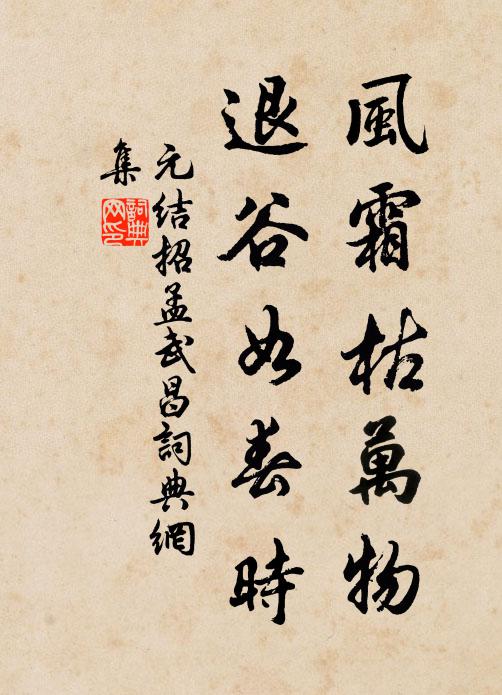 風霜枯萬物
退谷如春時
元結招孟武昌詞典網
集
詞典
网印